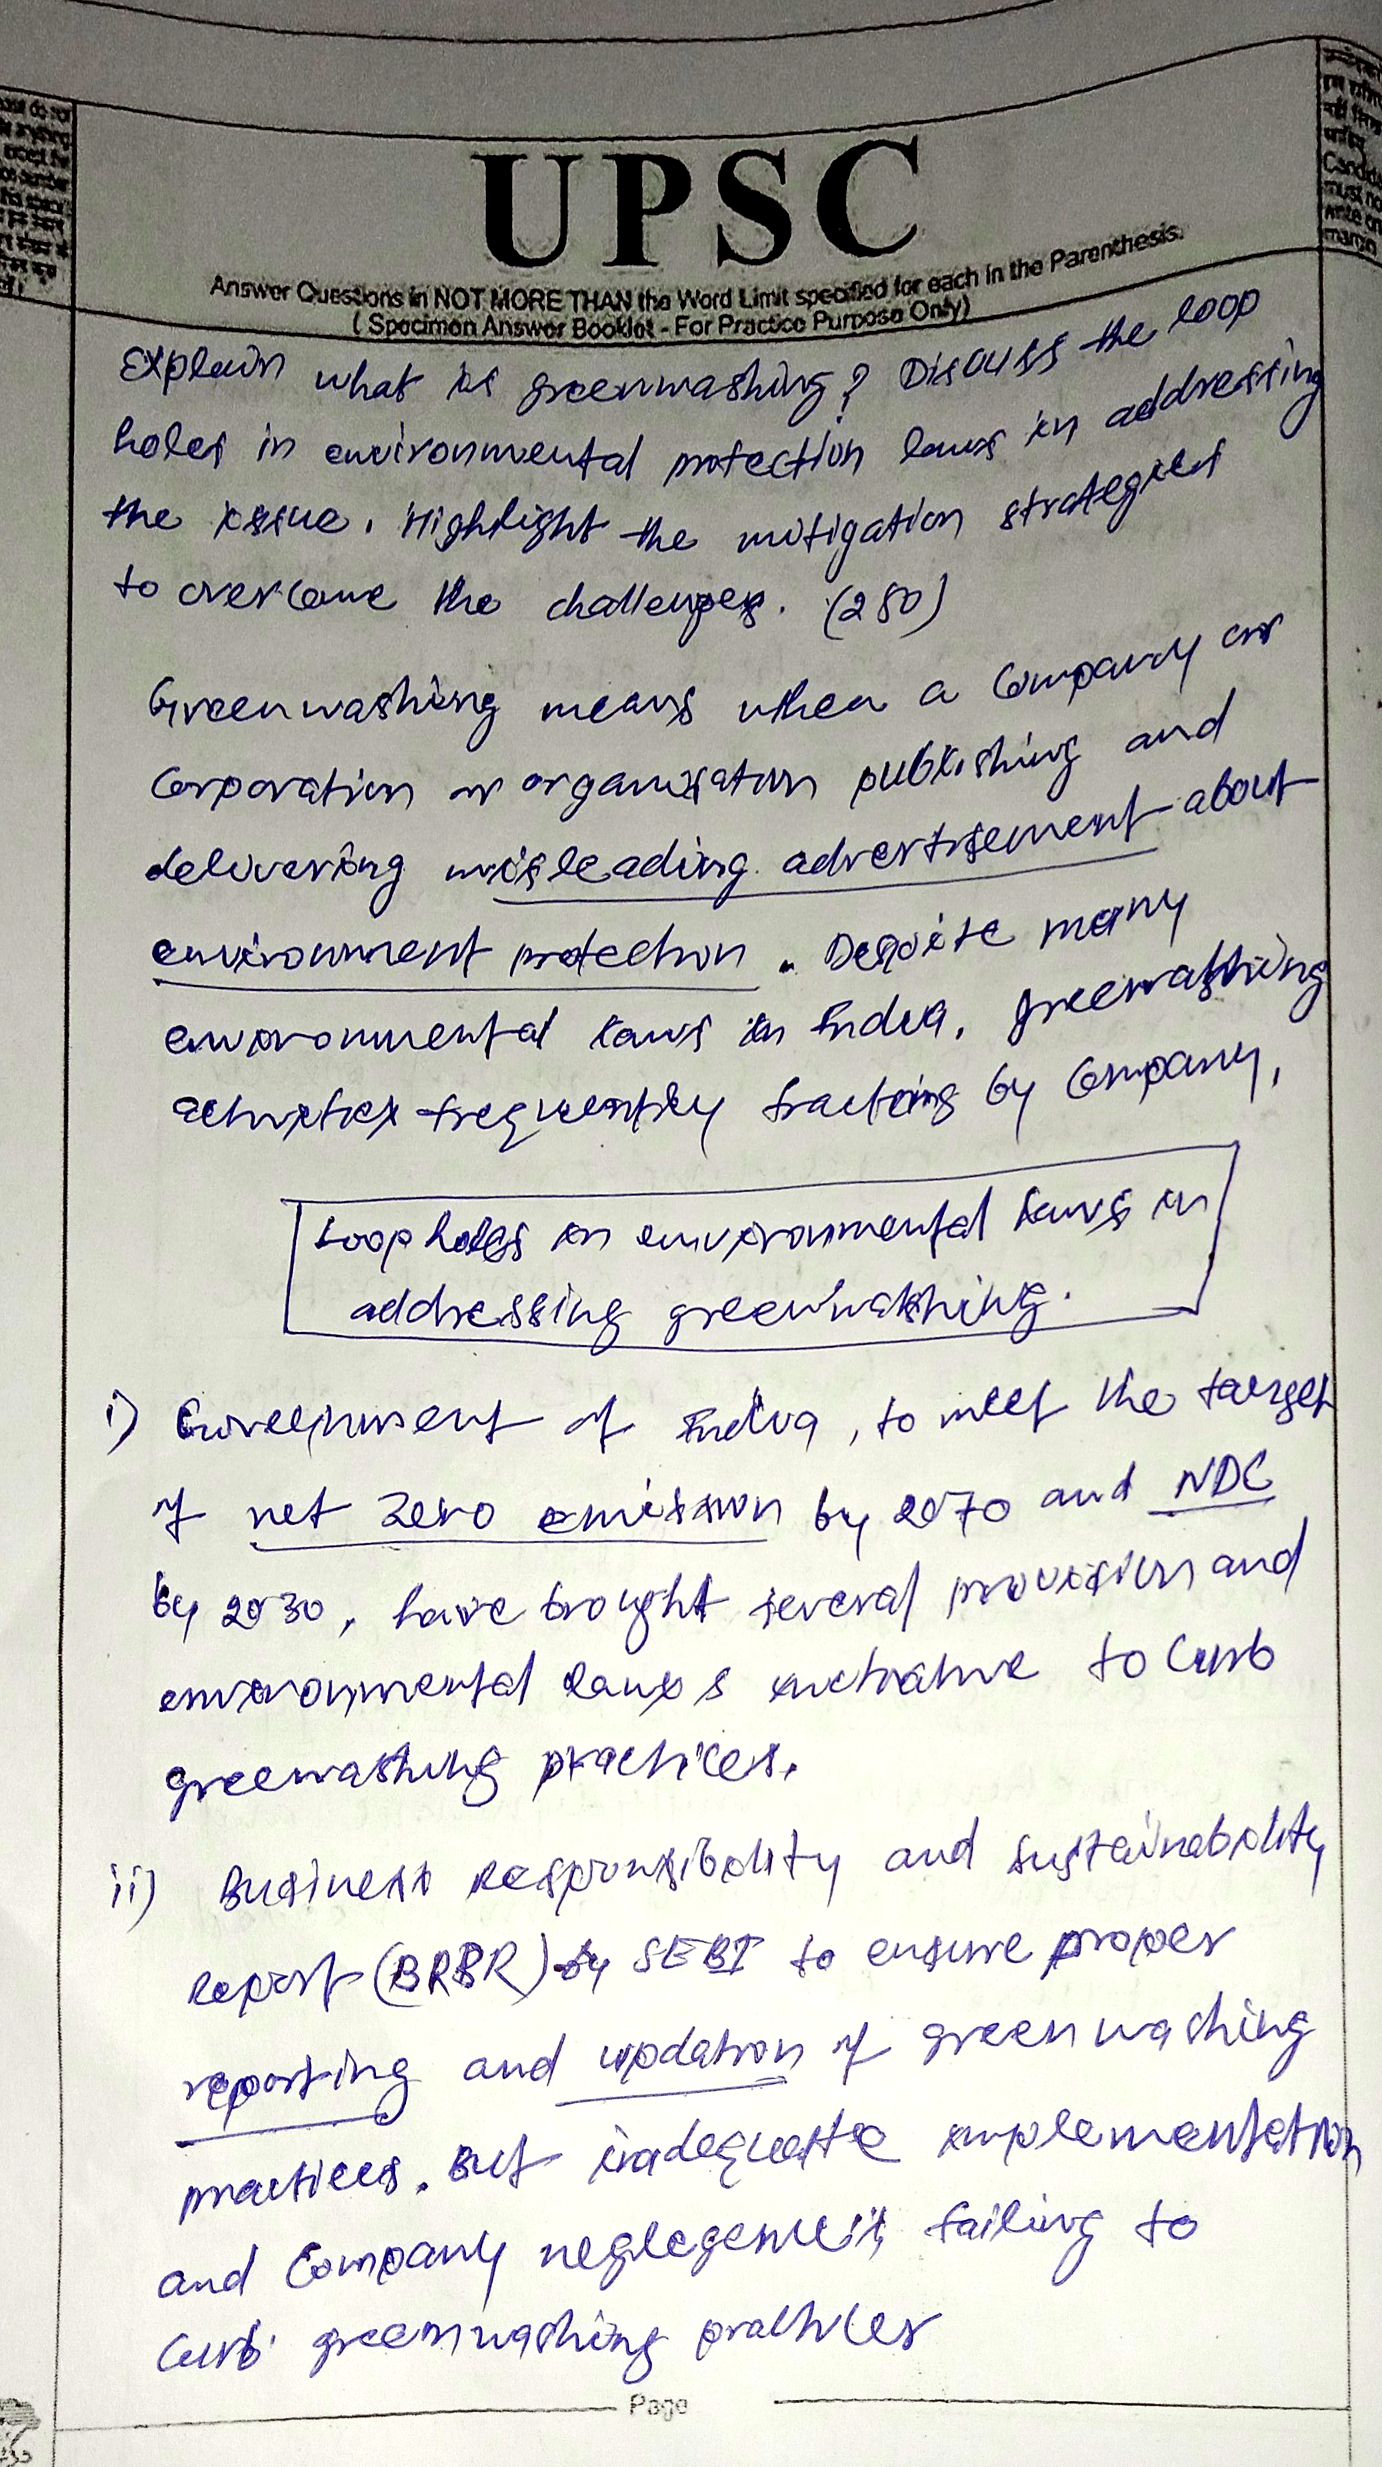 UPSC
Answer Questions in NOT MORE THAN the Word Limit specified for each in the Parenthesis.
( Specimen Answer Booklet - For Practice Purpose Only)
Candid
must no
write on
margin
Explain what is greenwashing? Discuss the loop
holes in environmental protection laws in addressing
the issue. Highlight the mitigation strategies
to overcome the challenges. (250)
Greenwashing means when a company or
Corporation or organisation publishing and
delivering misleading advertisement about
environment protection. Despite many
environmental laws in India, greenwashing
activities frequently by Company,
Loop holes in environmental laws in
addressing greenwashing.
i) Government of India, to meet the target
of net zero emission by 2070 and NDC
by 2030, have brought several provision and
environmental laws to curb
greenwashing practices.
ii) Business Responsibility and Sustainability
report (BRSR) by SEBI to ensure proper
reporting and updation of greenwashing
practices. But inadequate implementation
and Company failing to
curb greenwashing practices
Page